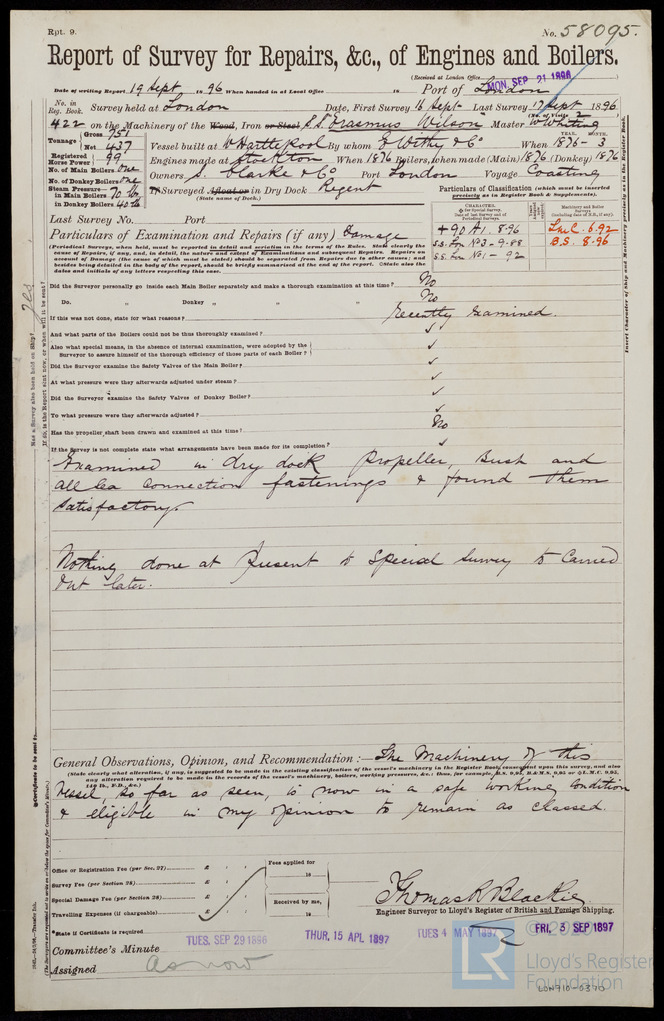 Rpt. 9.
No. 58095.
Report of Survey for Repairs, &c., of Engines and Boilers.
(Received at London Office
MON. SEP 21 1896
Date of writing Report 19 Sept 1896 When handed in at Local Office 18 Port of London
No. in Reg. Book.
Survey held at London Date, First Survey 16 Sept Last Survey 17 Sept 1896
(No. of Visits 2
422 on the Machinery of the Wood, Iron or Steel S.S. "Erasmus Wilson" Master W Whiting
Tonnage Gross 751
Net 437
Vessel built at W Hartlepool By whom E Withy & Co When 1876-3
YEAR. MONTH.
Registered Horse Power 99
Engines made at Stockton When 1876 Boilers, when made (Main) 1876 (Donkey) 1876
No. of Main Boilers One
No. of Donkey Boilers One
Owners S. Clarke & Co Port London Voyage Coasting
Steam Pressure in Main Boilers 70 lb
in Donkey Boilers 40 lb
If Surveyed Afloat or in Dry Dock Regent
(State name of Dock.)
Particulars of Classification (which must be inserted precisely as in Register Book & Supplements).
Last Survey No. Port
Particulars of Examination and Repairs (if any) Damage
CHARACTER.
Machinery and Boiler Surveys
+ 90 A1. 8.96
S.S. Lon No 3-9.88
S.S. Lon No 1-92
LMC. 6.92
B.S. 8.96
(Periodical Surveys, when held, must be reported in detail and seriatim in the terms of the Rules. State clearly the cause of Repairs, if any, and, in detail, the nature and extent of Examinations and subsequent Repairs. Repairs on account of Damage (the cause of which must be stated) should be separated from Repairs due to other causes; and besides being detailed in the body of the report, should be briefly summarised at the end of the report. State also the dates and initials of any letters respecting this case.
Did the Surveyor personally go inside each Main Boiler separately and make a thorough examination at this time? No
Do. " Donkey " " " ? No
If this was not done, state for what reasons? Recently examined.
And what parts of the Boilers could not be thus thoroughly examined? ✓
Also what special means, in the absence of internal examination, were adopted by the Surveyor to assure himself of the thorough efficiency of those parts of each Boiler? ✓
Did the Surveyor examine the Safety Valves of the Main Boiler? ✓
At what pressure were they afterwards adjusted under steam? ✓
Did the Surveyor examine the Safety Valves of Donkey Boiler? ✓
To what pressure were they afterwards adjusted? ✓
Has the propeller shaft been drawn and examined at this time? No
If the Survey is not complete state what arrangements have been made for its completion? ✓
Examined in dry dock propeller, Bush and
all sea connection fastenings & found them
satisfactory.
Nothing done at present to Special Survey to Carried
out later.
General Observations, Opinion, and Recommendation:— The Machinery of this
(State clearly what alteration, if any, is suggested to be made in the existing classification of the vessel's machinery in the Register Book, consequent upon this survey, and also any alteration required to be made in the records of the vessel's machinery, boilers, working pressures, &c.: thus, for example, B.S. 9,95, B.&M.S. 9,95 or L.M.C. 9,95, 140 lb., F.D., &c.)
vessel, so far as seen, is now in a safe working condition
& eligible in my opinion to remain as classed.
Office or Registration Fee (per Sec. 27) £ : :
Survey Fee (per Section 28) £ : :
Special Damage Fee (per Section 28) £ : :
Travelling Expenses (if chargeable) £ : :
Fees applied for
18
Received by me,
18
Thomas R Blackie
Engineer Surveyor to Lloyd's Register of British and Foreign Shipping.
*State if Certificate is required
Committee's Minute
TUES. SEP 29 1896
THUR. 15 APL 1897
TUES 4 MAY 1897
FRI. 3 SEP 1897
Assigned as now
Has a Survey also been held on Ship? Yes
If so, is the Report sent now, or when will it be sent?
Insert Character of Ship and Machinery precisely as in the Register Book.
Certificate to be sent to
(The Surveyors are requested not to write on or below the space for Committee's Minute.)
Lloyd's Register
Foundation
LR
LON910-0370